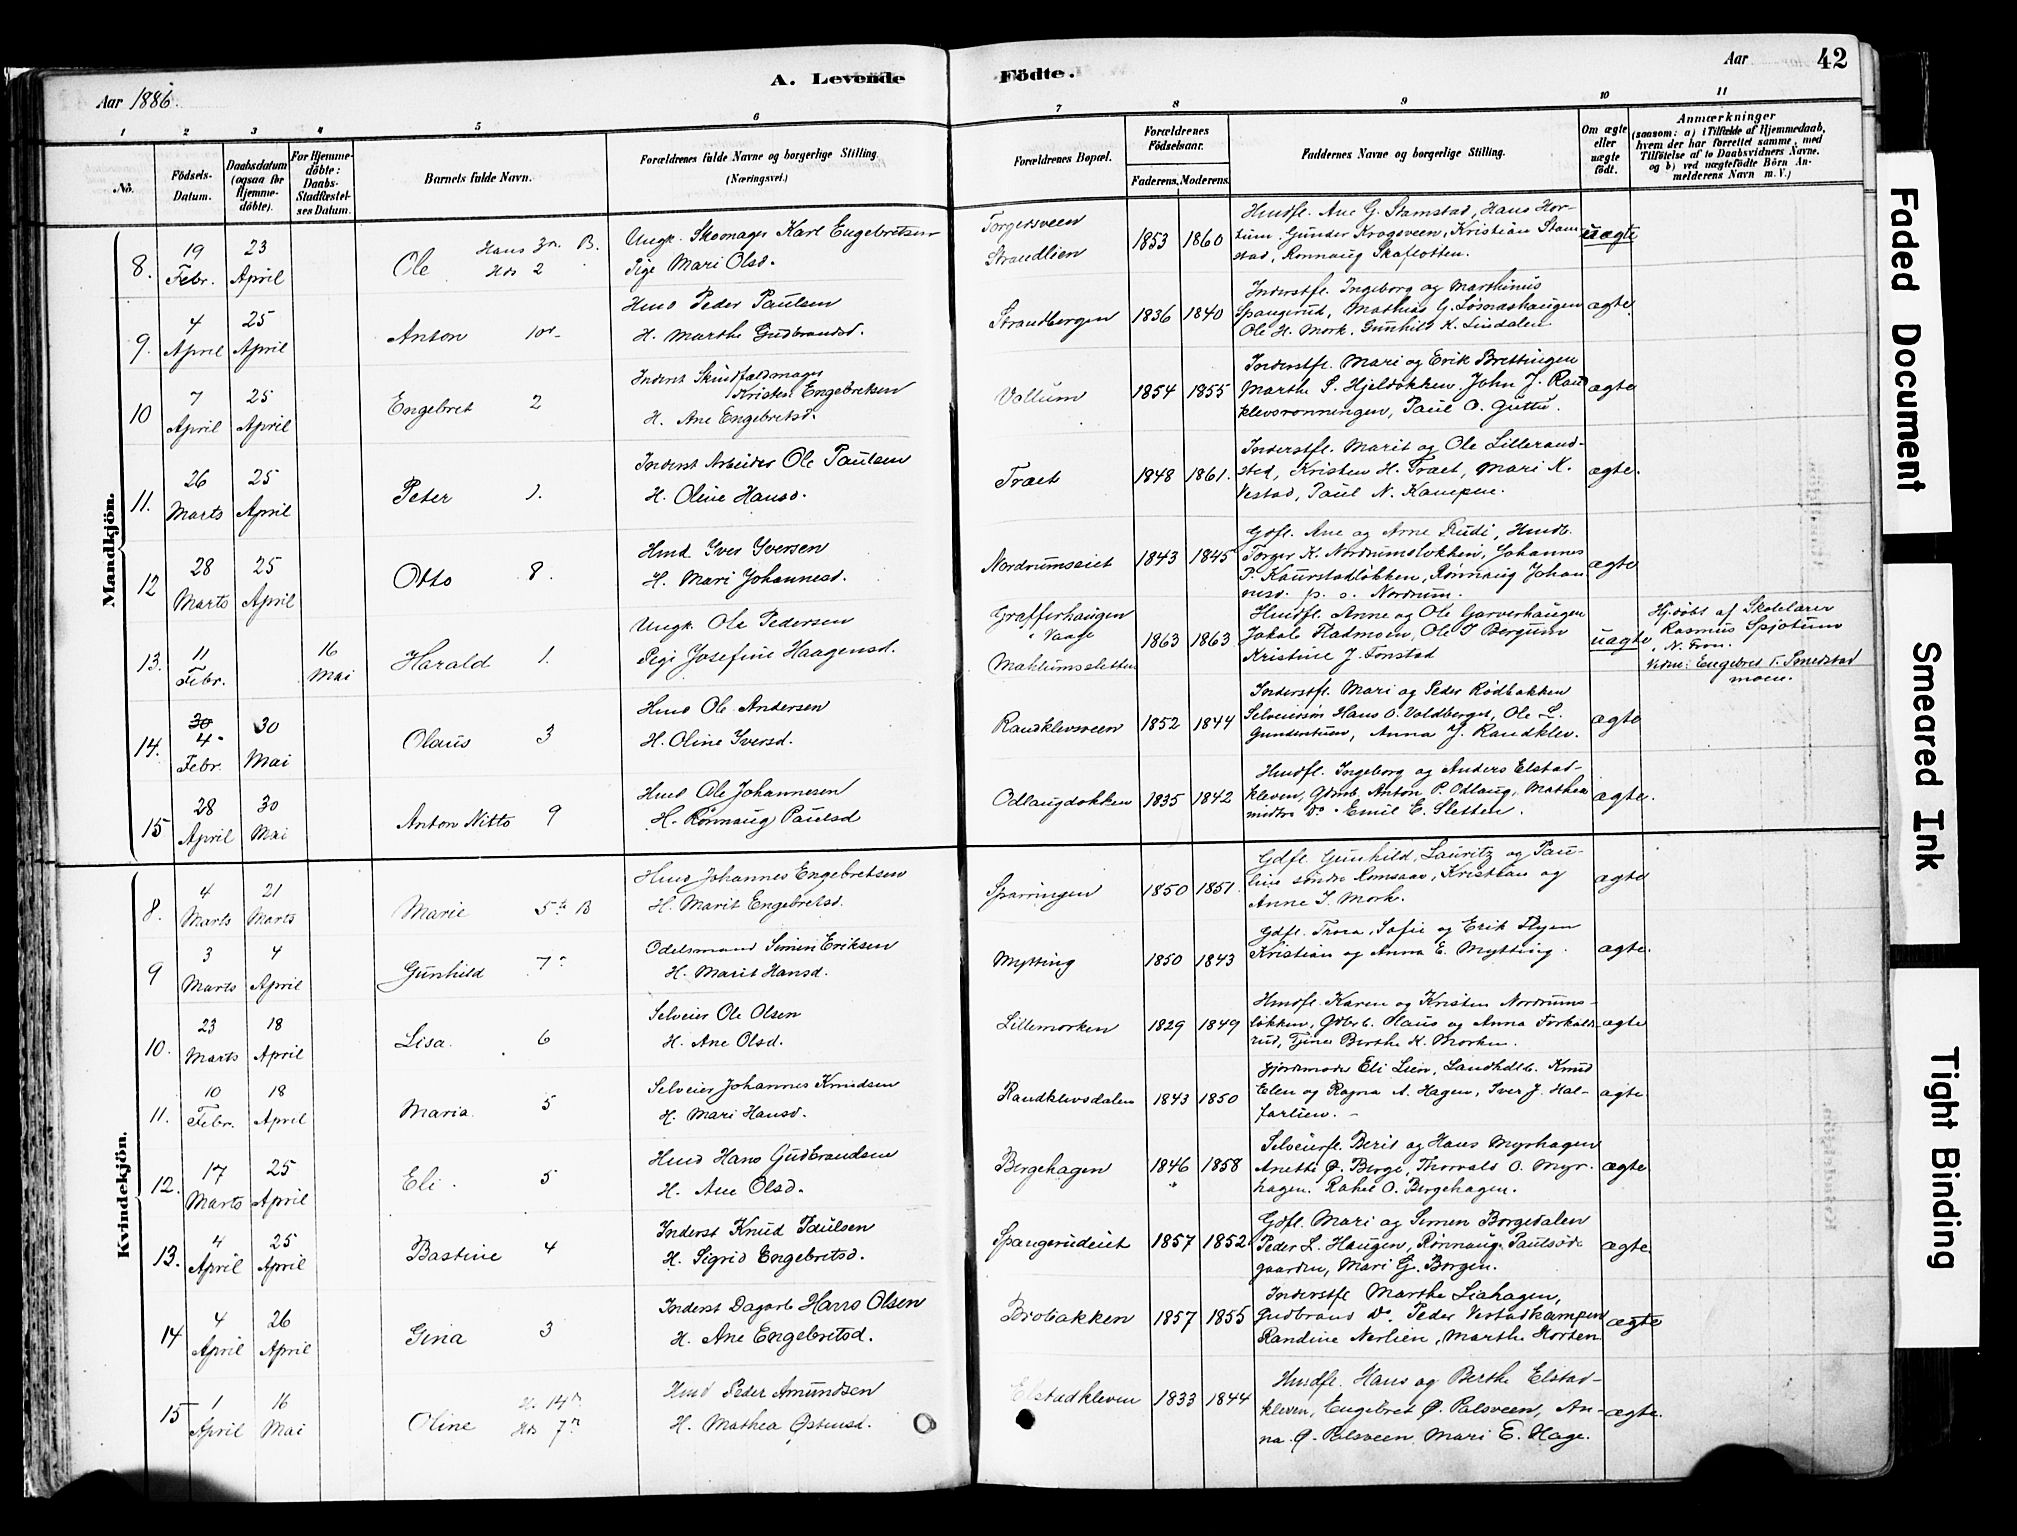 A. Levende Födte.
Aar 1886.
Aar 42
1 2 3 4 5 6 7 8 9 10 11
No.
Födsels-Datum.
Daabsdatum (ogsaa for Hjemme-döbte).
For Hjemme-döbte: Daabs-Stadfæstel-ses Datum.
Barnets fulde Navn.
Forældrenes fulde Navne og borgerlige Stilling
(Næringsvei.)
Forældrenes Bopæl.
Forældrenes Födselsaar.
Faderens. Moderens.
Faddernes Navne og borgerlige Stilling.
Om ægte eller uægte födt.
Anmærkninger
(saasom: a) i Tilfælde af Hjemmedaab,
hvem der har forrettet samme, med
Tilföielse af to Daabsvidners Navne,
og b) ved uægtefödte Börn An-
melderens Navn m. V.)
Mandkjön.
8. 19 Febr. 23 April Ole Hans 3n. B. Hds 2
Ungk. Skomager Karl Engebretsen
Pige Mari Olsd.
Torgersveen
Strandlien
1853 1860
Husdfl. Ane G. Stamstad, Hans Hor-
tum, Gunder Kragsveen, Kristian Stam-
stad, Rønnaug Skaflotten.
uægte
9. 4 April 25 April Anton 10n
Husd Peder Paulsen
H. Marthe Gudbrandsd.
Strandbergen 1836 1840
Inderstfl. Ingeborg og Marthinus
Spangerud, Mathias G. Lømoshaugen
Ole H. Mork, Gunhild K. Lindalen
ægte.
10 7 April 25 April Engebret 2
Inderst Skindfældmager
Kristen Engebretsen
H. Ane Engebretsd.
Vollum 1854 1855
Inderstfl. Mari og Erik Brettingen
Marthe S. Hjeldokken, John J. Rand
klevsrønningen, Paul O. Guttu.
ægte
11. 26 Marts 25 April Peter 1.
Inderst Arbeider Ole Paulsen
H. Oline Hansd.
Træet 1848 1861.
Inderstfl. Marit og Ole Lillerand-
sted, Kristen H. Træet, Mari K.
Vestad, Paul N. Kampen.
ægte.
12 28 Marts 25 April Otto 8.
Husd Iver Iversen
H. Mari Johannesd.
Nordrumseiet 1843 1845
Gdfl. Ane og Arne Rudi, Husdb.
Torger K. Nordrumsløkken, Johannes
P. Kaurstadløkken, Rønnaug Johan
nesd. p. s. Nordrum.
ægte
13. 11 Febr. 16 Mai Harald 1.
Ungk. Ole Pedersen
Pige Josefine Haagensd.
Græfferhaugen
i Vaage
Maklumsletten
1863 1863
Husdfl. Anne og Ole Garverhaugen
Jakob Fladmoen, Ole I Bergum
Kristine J. Tonstad
uægte
Hj.døbt af Skolelærer
Rasmus Spjotum
N. Fron.
Vidne: Engebret T. Smedstad
moen.
14. 30 4 Febr. 30 Mai Olaus 3
Husd Ole Andersen
H. Oline Iversd.
Randklevsveen 1852 1844
Inderstfl. Mari og Peder Rødbakken
Selveiersøn Hans O. Voldberget, Ole L.
Gunderstuen, Anna J. Randklev.
ægte
15 28 April 30 Mai Anton Nitto 9
Husd Ole Johannesen
H. Rønnaug Paulsd
Odlaugdokken 1835 1842
Husdfl. Ingeborg og Anders Elstad-
kleven, Gdmb. Anton P. Odlaug, Mathea
midtre Do. Emil E. Sletten.
ægte.
Kvindekjön.
8. 4 Marts 21 Marts Marie 5te B
Husd Johannes Engebretsen
H. Marit Engebretsd.
Sparringen 1850 1851.
Gdfl. Gunhild, Lauritz og Pau-
line søndre Romsaas, Kristian og
Anne I. Mork.
ægte
9 3 Marts 4 April Gunhild 7n
Odelsmand Simen Eriksen
H. Marit Hansd.
Mytting 1850 1843
Gdfl. Trova, Sofie og Erik Flysen
Kristian og Anna E. Mytting.
ægte.
10. 23 Marts 18 April Lisa. 6
Selveier Ole Olsen
H. Ane Olsd.
Lillemorken 1829 1849
Husdfl. Karen og Kristen Nordrums-
løkken, Gdbr. C. Olaus og Anna Forkals
rud, Tjener Berthe K. Morken.
ægte
11. 10 Febr. 18 April Maria. 5
Selveier Johannes Knudsen
H. Mari Hansd.
Randklevsdalen 1843 1850
Gjordemoder Eli Lien, Landhdlb. Knud
Elen og Ragna A. Hagen, Iver J. Hal-
farlien.
ægte
12. 17 Marts 25 April Eli. 5
Husd Hans Gudbrandsen
H. Ane Olsd.
Bergehagen 1846 1858
Selveierfl. Berit og Hans Myrhagen
Anette O. Berge, Thorvald O. Myr-
hagen. Rahel O. Bergehagen.
ægte
13. 4 April 25 April Bastine 4
Inderst Knud Paulsen
H. Sigrid Engebretsd.
Spangerudeiet 1857 1852
Gdfl. Mari og Simen Borgedalen
Peder L. Haugen, Rønnaug Paulsøde
gaarden, Mari G. Borgen.
ægte.
14 4 April 26 April Gina 3
Inderst Dagarb Hans Olsen
H. Ane Engebretsd.
Brobakken 1857 1855
Inderstfl Marthe Liahagen,
Gudbrand Do. Peder Vestadkampen
Randine Nerlien, Marthe Horten
ægte
15 1 April 16 Mai Oline H. 14n Hds 7n
Husd Peder Amundsen
H. Mathea Østensd.
Elstadkleven 1833 1844
Husdfl. Hans og Berthe Elstad-
kleven, Engebret Ø. Palsveen, An-
na Ø. Palsveen, Mari E. Hage.
ægte.
Faded Document
Smeared Ink
Tight Binding